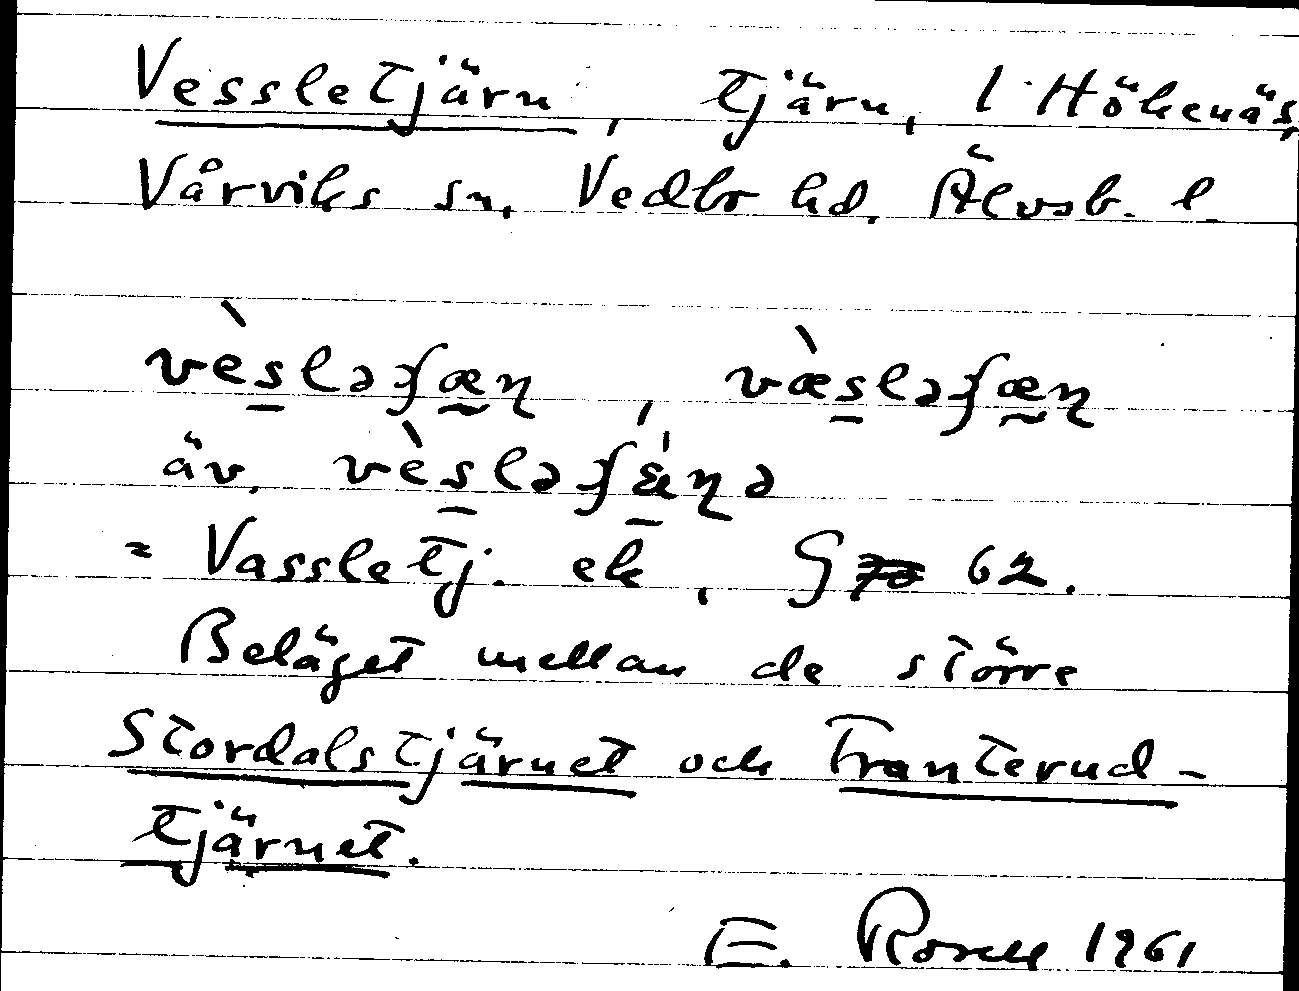 Vessletjärn, tjärn, l. Hökenäs,
Vårviks sn, Vedbo hd. Älvsb. l.
vèslǝʃæɳ, væ̀slǝʃæɳ
äv. vèslǝʃǽɳǝ
= Vassletj. ek, G 62.
Beläget mellan de större
Stordalstjärnet och Tranterud-
tjärnet.
E. Rosell 1961